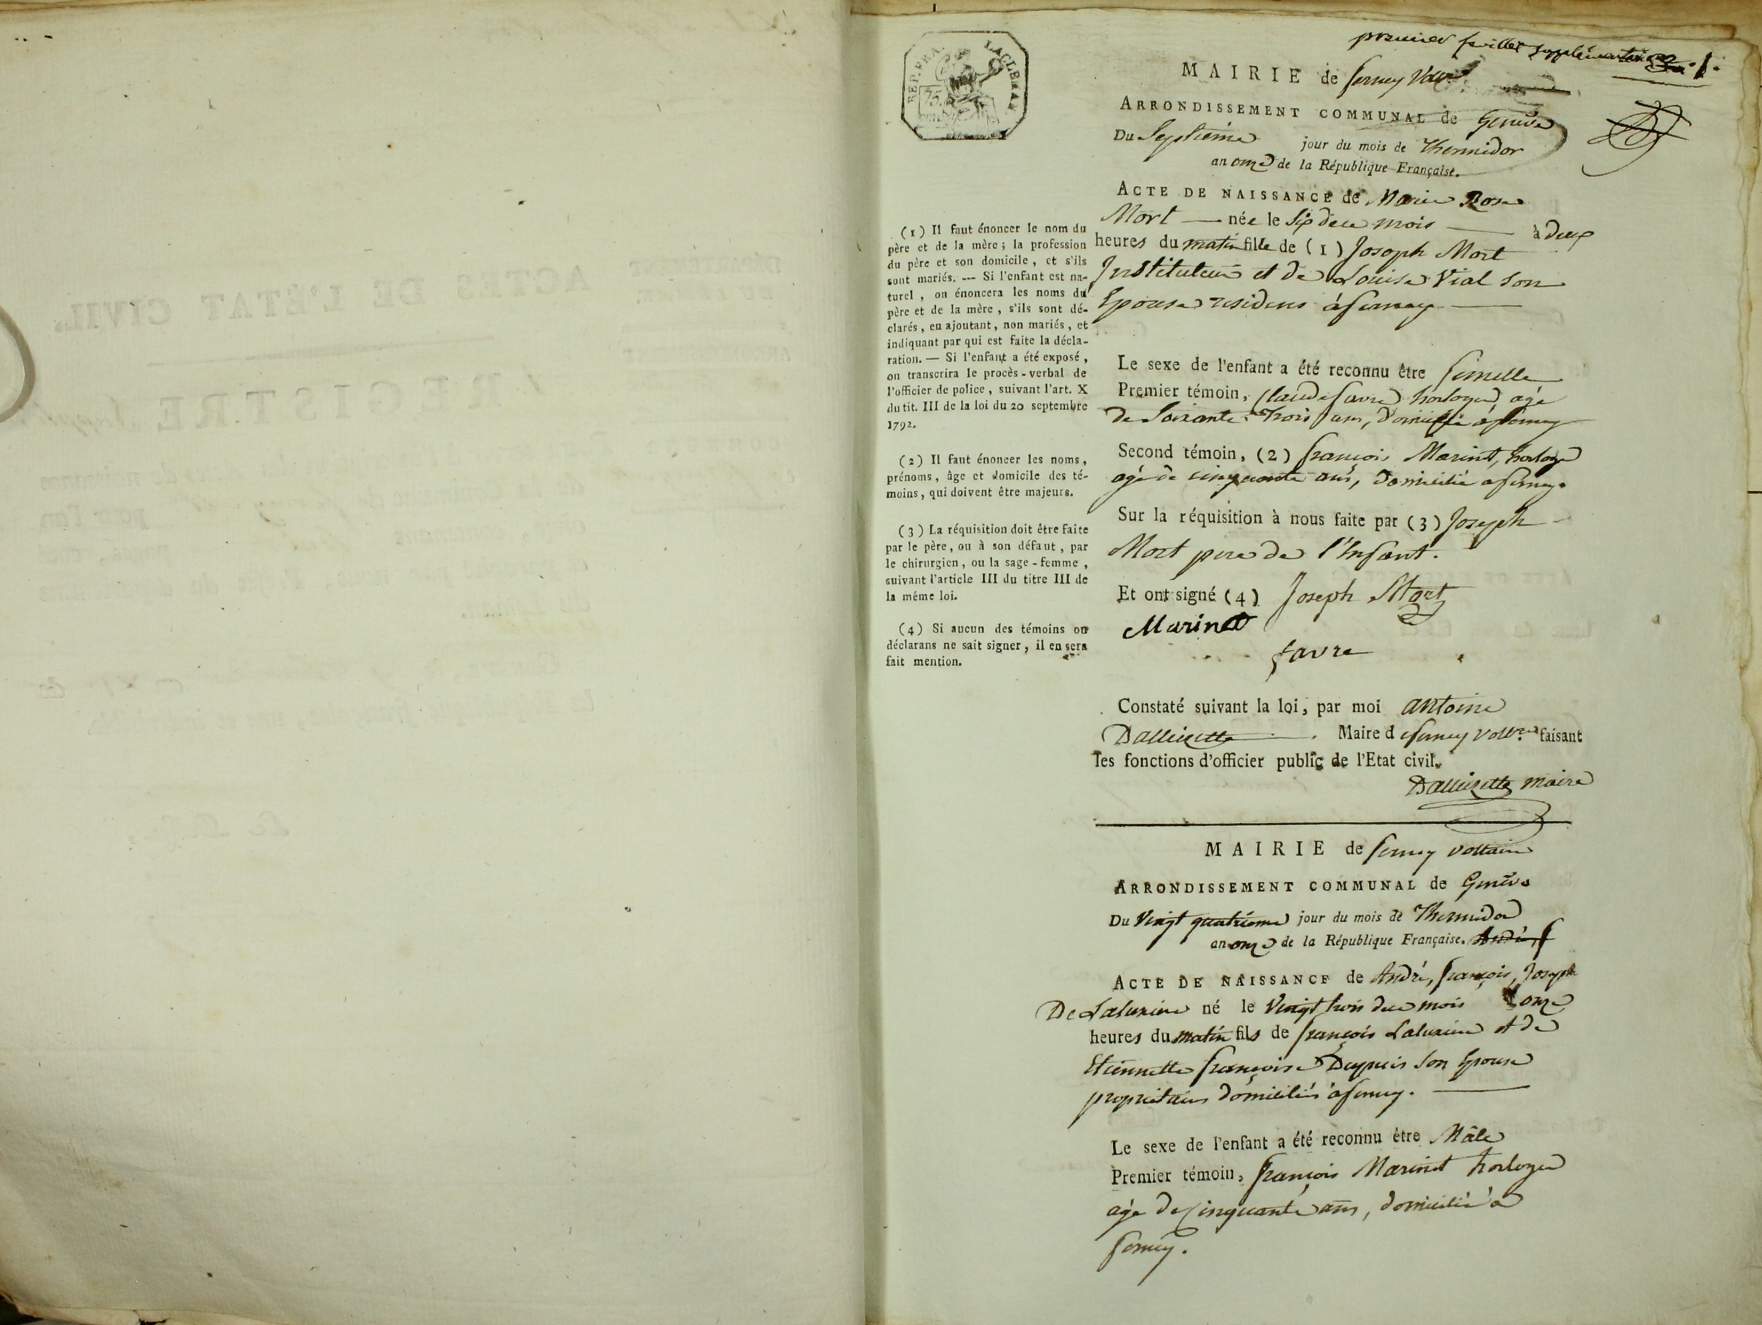 premier feuillet supplémentaire 1.
REP. FRA.
75
MAIRIE de ferney Volt.
ARRONDISSEMENT COMMUNAL de Genève
Du Septième jour du mois de Thermidor
an onze de la République Française.
ACTE DE NAISSANCE de Marie Rose
Mort — née le Six du mois — à deux
heures du matin fille de (1) Joseph Mort
Instituteur et de Louise Vial son
Epouse residens à ferney —
Le sexe de l'enfant a été reconnu être femelle
Premier témoin, Claude favre horloger agé
de Soixante-trois ans, domicilié à ferney
Second témoin, (2) françois Marinet, horloger
agé de cinquante ans, domicilié à ferney.
Sur la réquisition à nous faite par (3) Joseph
Mort pere de l'Enfant.
Et ont signé (4) Joseph Mort
Marinet
favre
Constaté suivant la loi, par moi antoine
Dallizette Maire d ferney volt.re faisant
les fonctions d'officier public de l'Etat civil.
Dallizette maire
(1) Il faut énoncer le nom du
père et de la mère ; la profession
du père et son domicile, et s'ils
sont mariés. — Si l'enfant est na-
turel, on énoncera les noms du
père et de la mère, s'ils sont dé-
clarés, en ajoutant, non mariés, et
indiquant par qui est faite la décla-
ration. — Si l'enfant a été exposé,
on transcrira le procès-verbal de
l'officier de police, suivant l'art. X
du tit. III de la loi du 20 septembre
1792.
(2) Il faut énoncer les noms,
prénoms, âge et domicile des té-
moins, qui doivent être majeurs.
(3) La réquisition doit être faite
par le père, ou à son défaut, par
le chirurgien, ou la sage-femme,
suivant l'article III du titre III de
la même loi.
(4) Si aucun des témoins ou
déclarans ne sait signer, il en sera
fait mention.
MAIRIE de ferney voltaire
ARRONDISSEMENT COMMUNAL de Genève
Du Vingt quatrième jour du mois de Thermidor
an onze de la République Française. André, f
ACTE DE NAISSANCE de André, françois, Joseph
De Lalunière né le Vingt trois du mois à onze
heures du matin fils de françois Lalunière et de
Etiennette françoise Dupuis son Epouse
propriétaires domiciliés à ferney. —
Le sexe de l'enfant a été reconnu être Mâle
Premier témoin, françois Marinet horloger
agé de Cinquante ans, domicilié à
ferney.